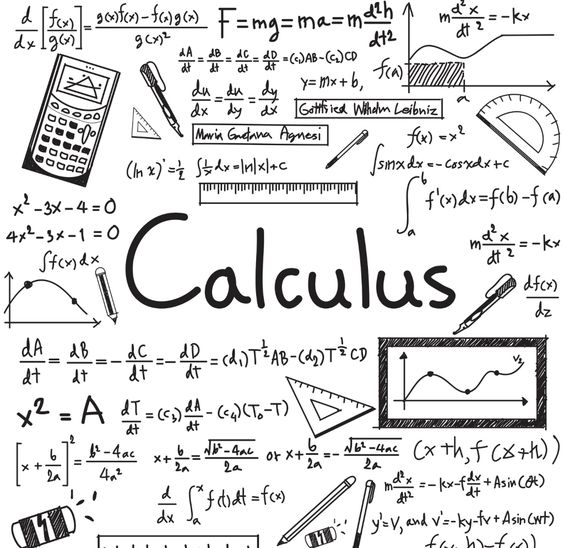 d/dx [f(x)/g(x)] = g(x)f(x) - f(x)g(x) / g(x)²
F = mg = ma = m d²h/dt²
m d²x/dt² = -kx
dA/dt = dB/dt = dC/dt = dD/dt = (c₁)AB-(c₂)CD
f(a)
a
du/dx = du/dy = dy/dx
y = mx + b,
Gottfried Wilhelm Leibniz
Maria Gaetana Agnesi
f(x) = x²
(ln x)' = 1/2
∫ 1/x dx = ln|x| + c
∫ sinx dx = -cosxdx + c
∫ₐᵇ f'(x)dx = f(b) - f(a)
x² - 3x - 4 = 0
4x² - 3x - 1 = 0
Calculus
m d²x/dt² = -kx
∫f(x)dx
df(x)/dz
dA/dt = dB/dt = -dC/dt = -dD/dt = (d₁)T^½AB-(d₂)T^½CD
V₂
x² = A
dT/dt = (c₃) dA/dt - (c₄)(T₀-T)
[x + b/2a]² = b²-4ac / 4a²
x + b/2a = √b²-4ac / 2a or x + b/2a = - √b²-4ac / 2a
(x+h, f(x+h))
d/dx ∫ₐˣ f(t)dt = f(x)
m d²x/dt² = -kx-f dx/dt + Asin(θt)
y' = V, and v' = -ky-fv + Asin(wt)